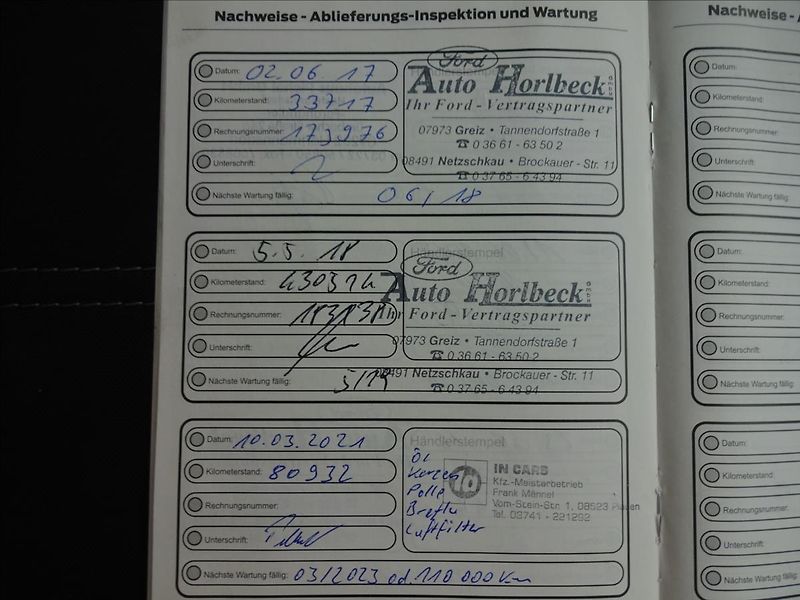 Nachweise - Ablieferungs-Inspektion und Wartung
Nachweise -
Datum: 02.06.17
Kilometerstand: 33717
Rechnungsnummer: 173976
Unterschrift:
Nächste Wartung fällig: 06/18
Ford
Auto Horlbeck GmbH
Ihr Ford - Vertragspartner
07973 Greiz • Tannendorfstraße 1
☎ 0 36 61 - 63 50 2
08491 Netzschkau • Brockauer - Str. 11
☎ 0 37 65 - 6 43 94
Datum: 5.5.18
Kilometerstand:
Rechnungsnummer:
Unterschrift:
Nächste Wartung fällig: 5/19
Händlerstempel
Ford
Auto Horlbeck GmbH
Ihr Ford - Vertragspartner
07973 Greiz • Tannendorfstraße 1
☎ 0 36 61 - 63 50 2
08491 Netzschkau • Brockauer - Str. 11
☎ 0 37 65 - 6 43 94
Datum: 10.03.2021
Kilometerstand: 80932
Rechnungsnummer:
Unterschrift:
Nächste Wartung fällig: 03/2023 od. 110 000 Km
Händlerstempel
Öl
Kerzen
Polle
Breflu
Luftfilter
IN CARS
Kfz.-Meisterbetrieb
Frank Männel
Vom-Stein-Str. 1, 08523 Plauen
Tel. 03741 - 221292
Datum:
Kilometerstand:
Rechnungsnummer:
Unterschrift:
Nächste Wartung fällig:
Datum:
Kilometerstand:
Rechnungsnummer:
Unterschrift:
Nächste Wartung fällig:
Datum:
Kilometerstand:
Rechnungsnummer:
Unterschrift:
Nächste Wartung fällig: